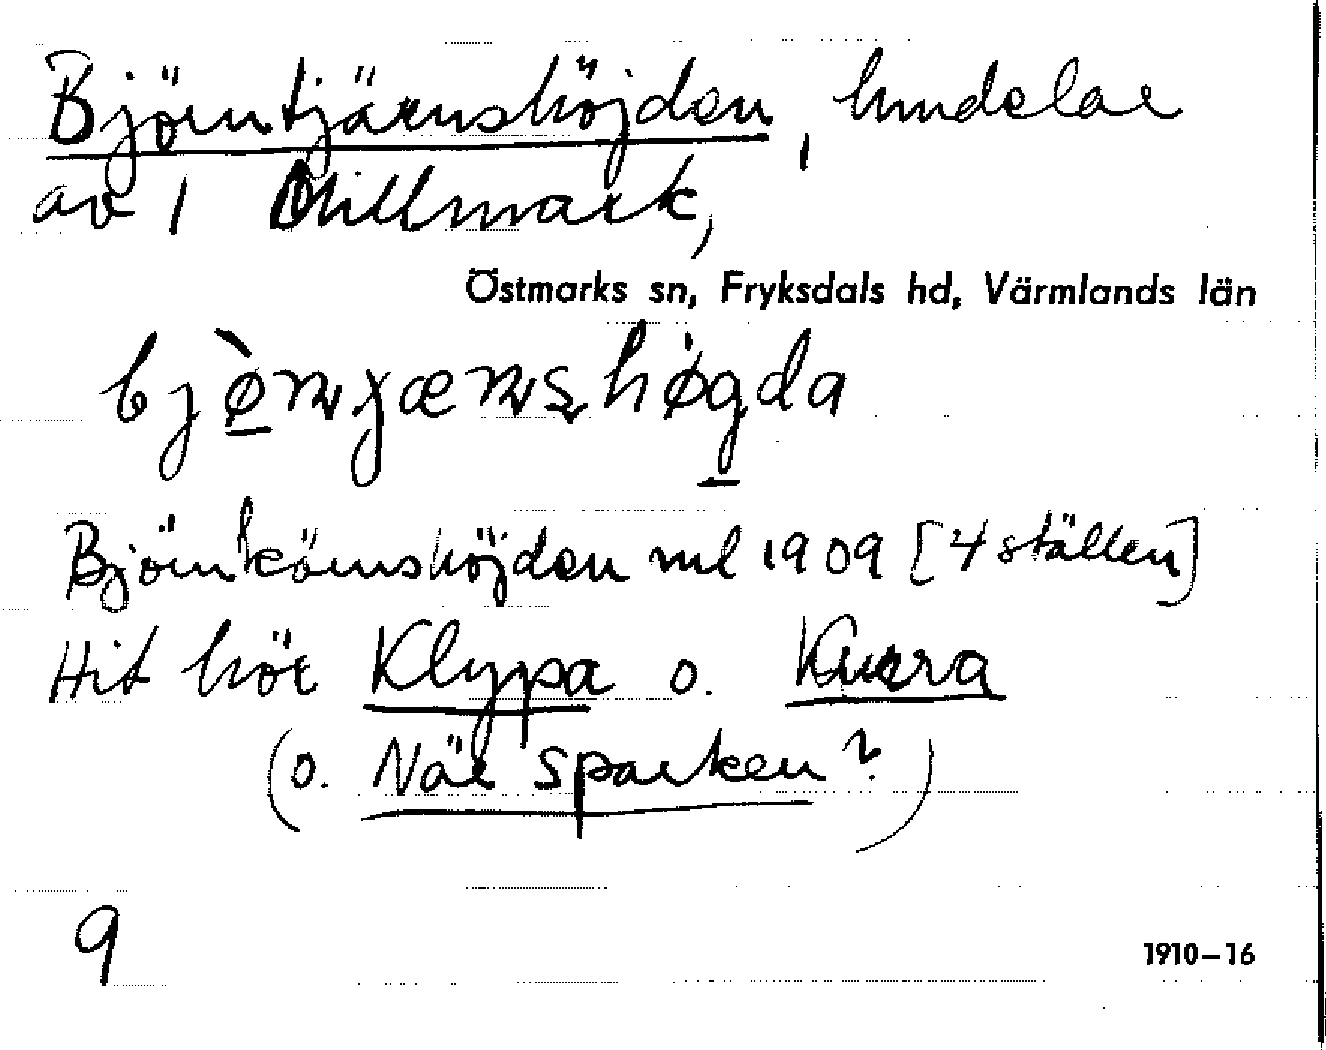 Björntjärnshöjden, hmdelar
av 1 Millmark,
Östmarks sn, Fryksdals hd, Värmlands län
Björnkärnshöjden ml 1909 [4 ställen]
Hit hör Klypa o. Kurra
(o. När sparken?)
9
1910–16